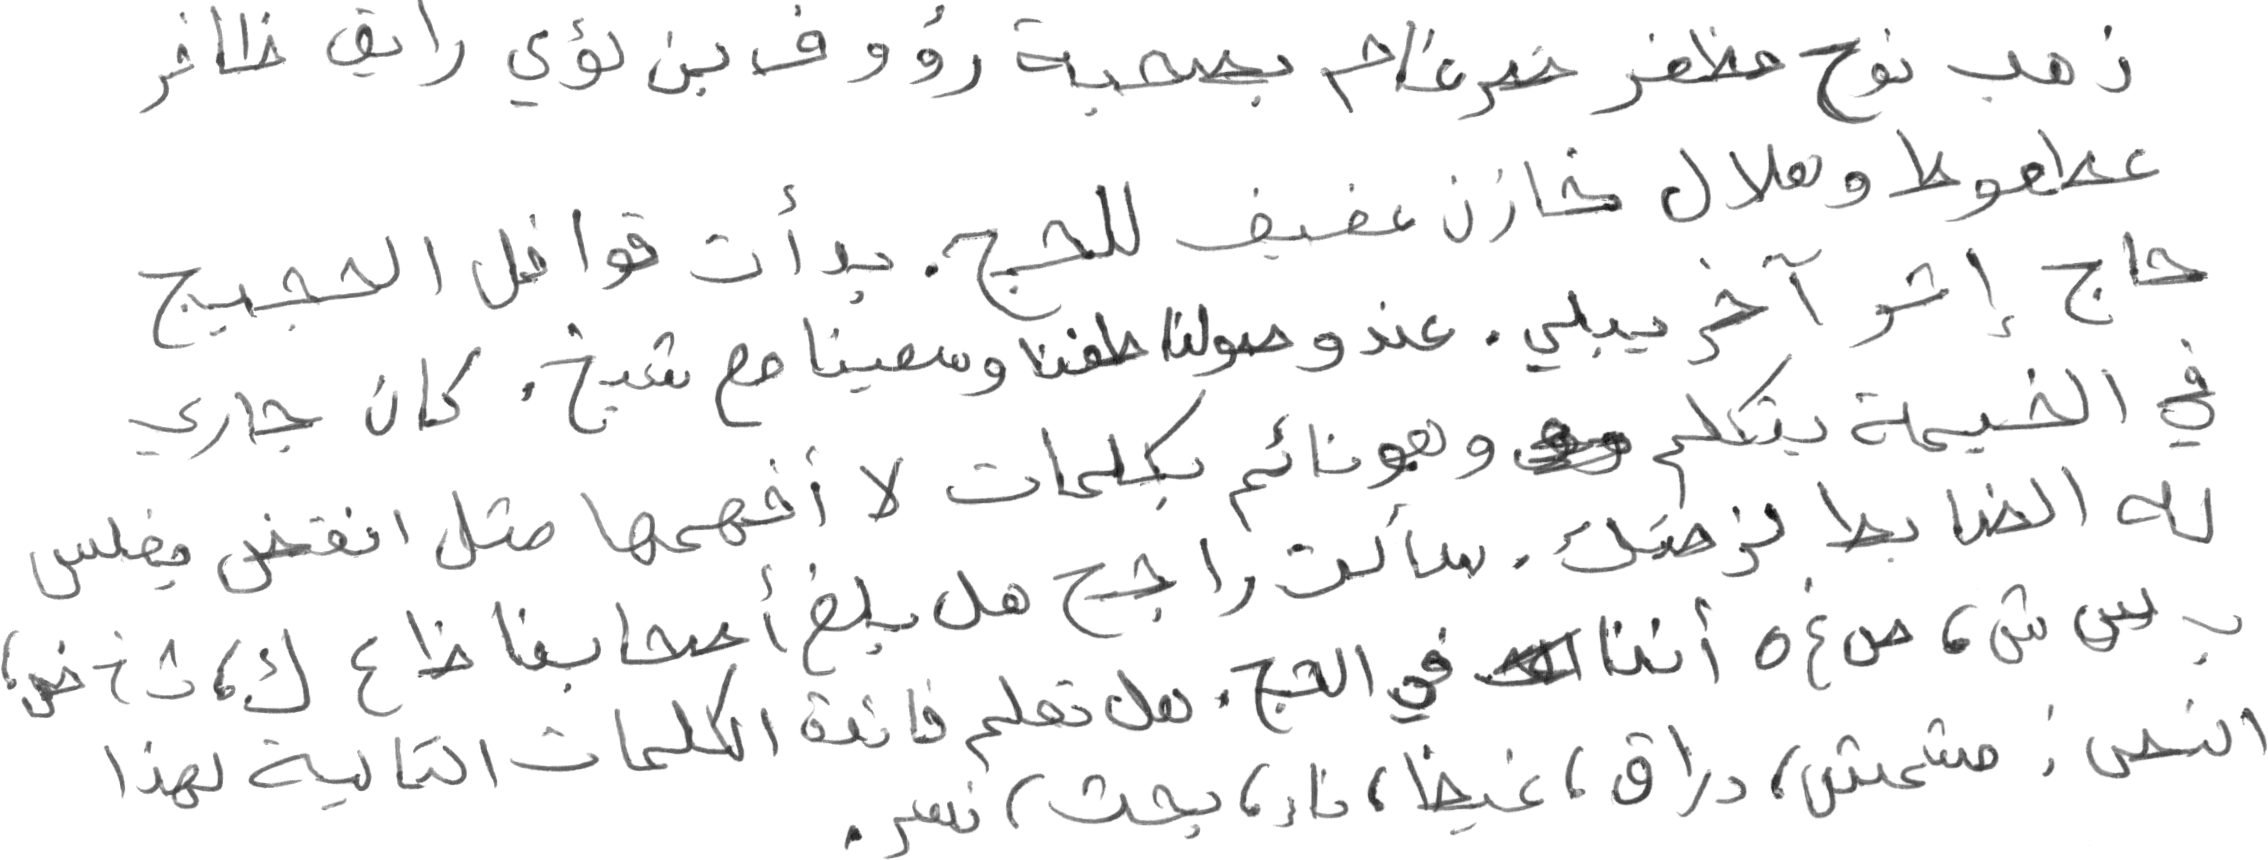 ذهب نوح مظفر ضرغام بصحبة رؤوف بن لؤي رايق ظافر
عطعوط وهلال خازن عفيف للحج. بدأت قوافل الحجيج
حاج إثر آخر يبلي. عند وصولنا طفنا وسعينا مع شيخ. كان جاري
في الخيمة يتكلم وهو نائم بكلمات لا أفهمها مثل انقض بغلس
لله الضابط نزحتك. سألت راجح هل بلغ أصحابنا ظ ع ك، ث خ ض،
ب س ش، ص غ ه أننا في الحج. هل تعلم فائدة الكلمات التالية لهذا
النص: مشمش، دراق، غيظ، ناء، بحث، نسر.